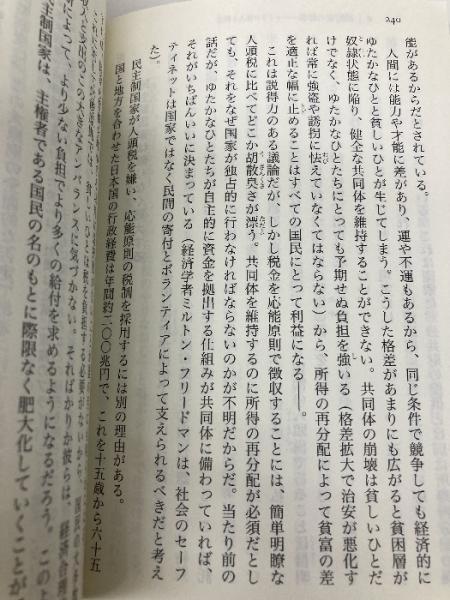 240
能があるからだとされている。
人間には能力や才能に差があり、運や不運もあるから、同じ条件で競争しても経済的に
ゆたかなひとと貧しいひとが生じてしまう。こうした格差があまりにも広がると貧困層が
奴隷状態に陥り、健全な共同体を維持することができない。共同体の崩壊は貧しいひとだ
けでなく、ゆたかなひとたちにとっても予期せぬ負担を強いる（格差拡大で治安が悪化す
れば常に強盗や誘拐に怯えていなくてはならない）から、所得の再分配によって貧富の差
を適正な幅に止めることはすべての国民にとって利益になる――。
これは説得力のある議論だが、しかし税金を応能原則で徴収することには、簡単明瞭な
人頭税に比べてどこか胡散臭さが漂う。共同体を維持するのに所得の再分配が必須だとし
ても、それをなぜ国家が独占的に行わなければならないのかが不明だからだ。当たり前の
話だが、ゆたかなひとたちが自主的に資金を拠出する仕組みが共同体に備わっていれば、
それがいちばんいいに決まっている（経済学者ミルトン・フリードマンは、社会のセーフ
ティネットは国家ではなく民間の寄付とボランティアによって支えられるべきだと考え
た）。
民主制国家が人頭税を嫌い、応能原則の税制を採用するには別の理由がある。
国と地方を合わせた日本国の行政経費は年間約二〇〇兆円で、これを十五歳から六十五
の大きなアンバランスに気づかない。そればかりか彼らは、経済合理
によって、より少ない負担でより多くの給付を求めるようになるだろう。このよ
主制国家は、主権者である国民の名のもとに際限なく肥大化していくことが